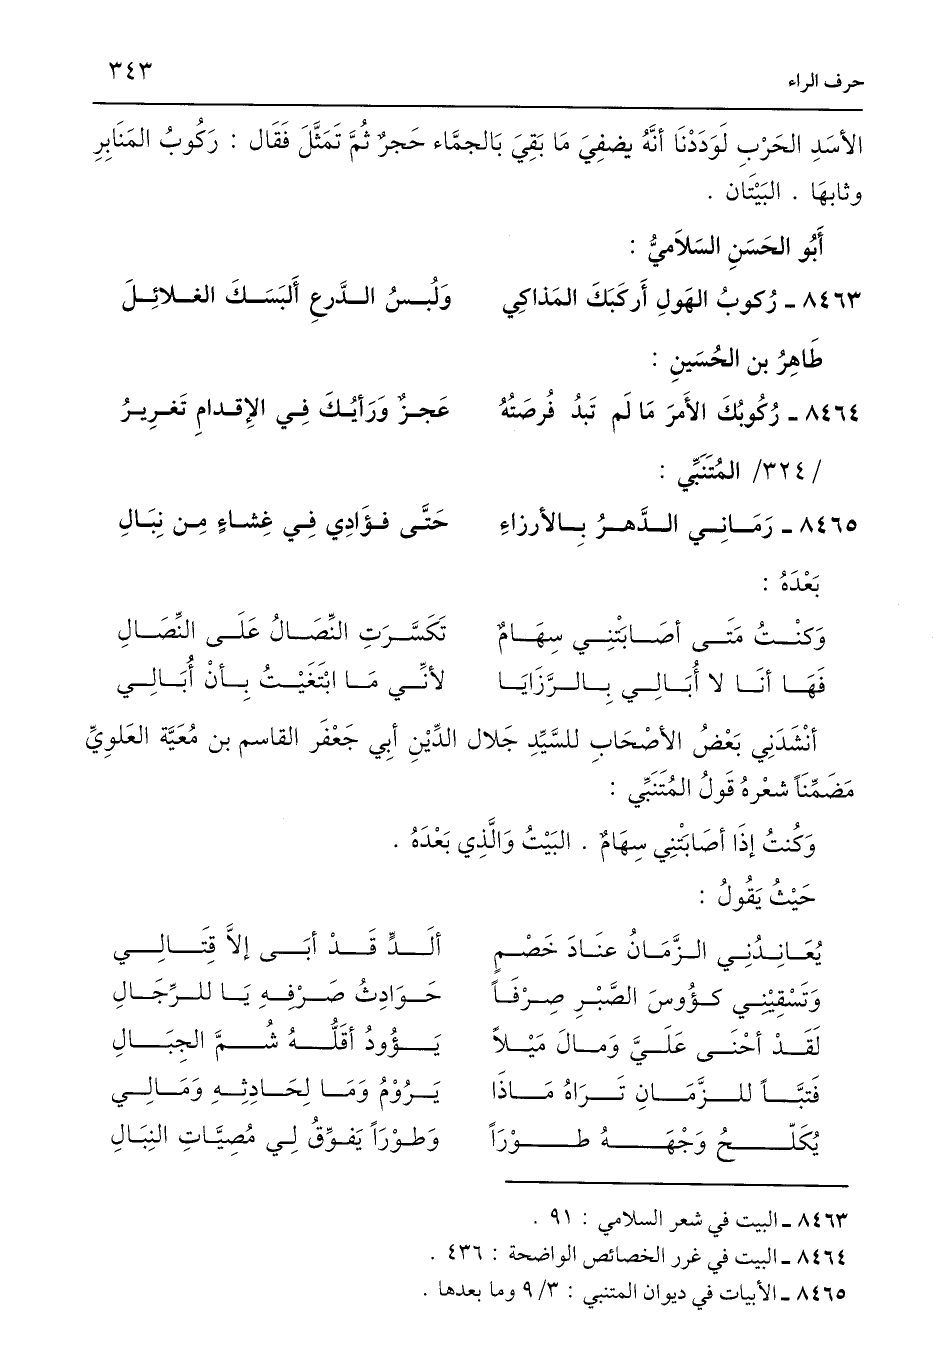 حرف الراء ٣٤٣
الأسَدِ الحَرْبِ لَوَدَدْنَا أنَّهُ يضفِيَ مَا بَقِيَ بَالجمَّاء حَجرٌ ثُمَّ تَمَثَّلَ فَقَال : رَكُوبُ المَنَابِرِ
وثابهَا . البَيْتَان .
أَبُو الحَسَنِ السَلاَميُّ :
٨٤٦٣ ـ رُكوبُ الهَولِ أَركَبَكَ المَذاكِي وَلُبسُ الدَّرعِ أَلبَسَكَ الغَلائِلَ
طَاهِرُ بن الحُسَينِ :
٨٤٦٤ ـ رُكُوبُكَ الأَمرَ مَا لَم تَبدُ فُرصَتُهُ عَجزٌ وَرَأيُكَ فِي الإِقدامِ تَغرِيرُ
/ ٣٢٤/ المُتَنَبِّي :
٨٤٦٥ ـ رَمَانِي الدَّهرُ بِالأرزاءِ حَتَّى فؤَادِي فِي غِشاءٍ مِن نِبَالِ
بَعْدَهُ :
وَكنْتُ مَتَى أصَابَتْنِي سِهَامٌ تَكَسَّرَتِ النِّصَالُ عَلَى النِّصَالِ
فَهَا أنَا لا أُبَالِي بِالرَّزَايَا لأنِّي مَا ابْتَغَيْتُ بِأنْ أُبَالِي
أنْشَدَنِي بَعْضُ الأصْحَابِ للسَّيِّدِ جَلال الدِّيْنِ أبي جَعْفَر القاسم بن مُعَيَّة العَلويِّ
مَضَمِّنَاً شعْرهُ قَولُ المُتَنَبِّي :
وَكُنتُ إذَا أصَابَتْنِي سِهَامٌ . البَيْتُ وَالَّذي بَعْدَهُ .
حَيْثُ يَقُولُ :
يُعَانِدُنِي الزَّمَانُ عنَادَ خَصْمٍ ألَدٍّ قَدْ أبَى إلاَّ قتَالِي
وَتَسْقِيْنِي كؤُوسَ الصَّبْرِ صِرْفَاً حَوَادِثُ صَرْفهِ يَا للرِّجَالِ
لَقَدْ أحْنَى عَلَيَّ وَمالَ مَيْلاً يَؤُودُ أقَلُّهُ شُمَّ الجِبَالِ
فَتبَّاً للزَّمَانِ تَرَاهُ مَاذَا يَرُوْمُ وَمَا لِحَادِثِهِ وَمَالِي
يُكَلّحُ وَجْهَهُ طَوْرَاً وَطوْرَاً يَفوِّقُ لِي مُصِيَّاتِ النِبَالِ
٨٤٦٣ ـ البيت في شعر السلامي : ٩١ .
٨٤٦٤ ـ البيت في غرر الخصائص الواضحة : ٤٣٦ .
٨٤٦٥ ـ الأبيات في ديوان المتنبي : ٩/٣ وما بعدها .